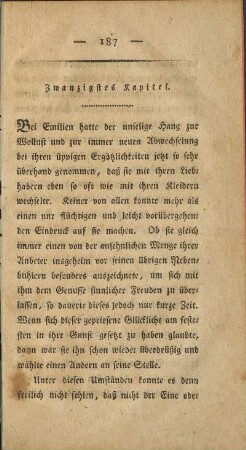 — 187 —
Zwanzigstes Kapitel.
Bei Emilien hatte der unselige Hang zur
Wollust und zur immer neuen Abwechselung
bei ihren üppigen Ergötzlichkeiten jetzt so sehr
überhand genommen, daß sie mit ihren Lieb-
habern eben so oft wie mit ihren Kleidern
wechselte. Keiner von allen konnte mehr als
einen nur flüchtigen und leicht vorübergehen-
den Eindruck auf sie machen. Ob sie gleich
immer einen von der ansehnlichen Menge ihrer
Anbeter insgeheim vor seinen übrigen Neben-
buhlern besonders auszeichnete, um sich mit
ihm dem Genusse sinnlicher Freuden zu über-
lassen, so dauerte dieses jedoch nur kurze Zeit.
Wenn sich dieser gepriesene Glückliche am feste-
sten in ihre Gunst gesetzt zu haben glaubte,
dann war sie ihn schon wieder überdrüßig und
wählte einen Andern an seine Stelle.
Unter diesen Umständen konnte es denn
freilich nicht fehlen, daß nicht der Eine oder